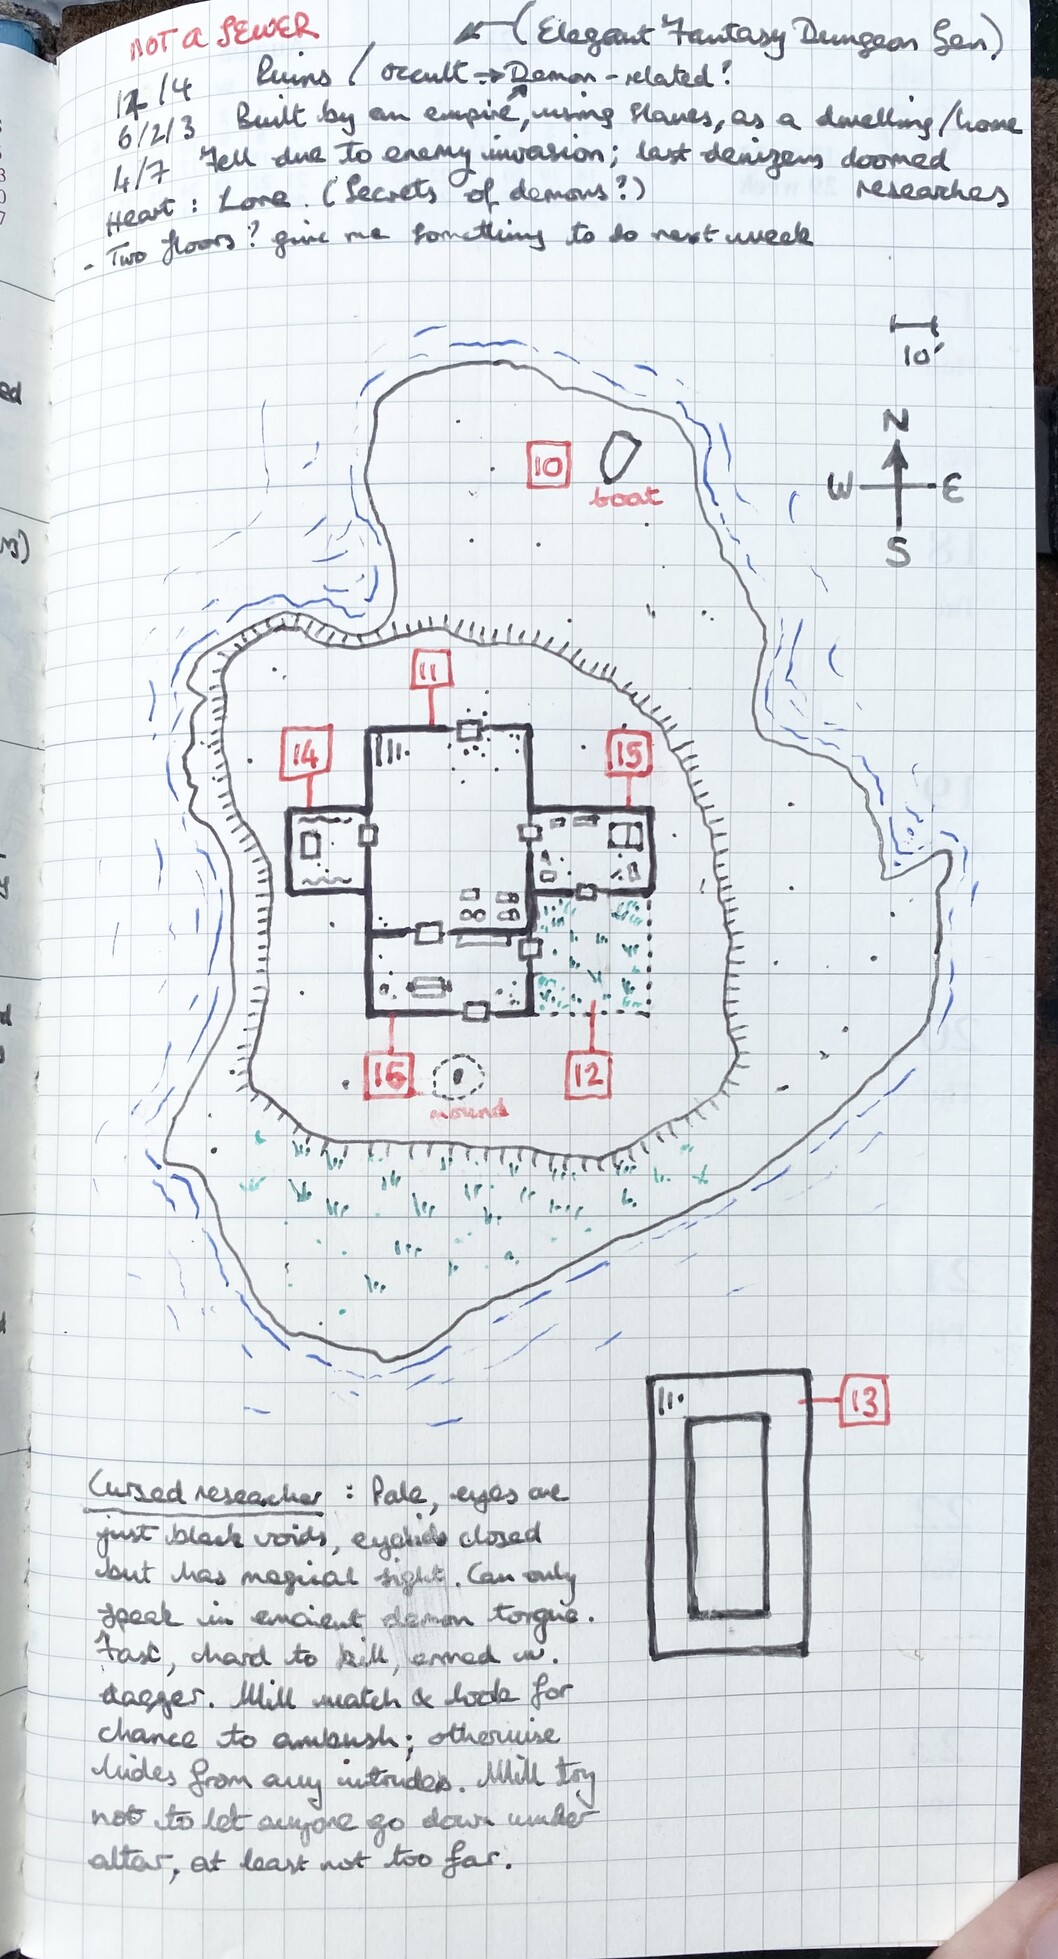 NOT A SEWER
(Elegant Fantasy Dungeon Gen)
12/4 Ruins / occult → Demon-related?
6/2/3 Built by an empire, using slaves, as a dwelling/home
4/7 Fell due to enemy invasion; last denizens doomed
researchers
Heart: Lore. (Secrets of demons?)
- Two floors? give me something to do next week
10'
N
W E
S
10
boat
11
14
15
16
12
mound
13
Cursed researcher: Pale, eyes are
just black voids, eyelids closed
but has magical sight. Can only
speak in ancient demon tongue.
Fast, hard to kill, armed w.
dagger. Will watch & look for
chance to ambush; otherwise
hides from any intruders. Will try
not to let anyone go down under
altar, at least not too far.